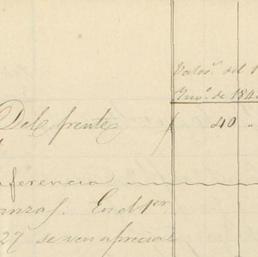 Valor. del 1
Inv.o de 184
Del frente $ 40
ferencia
anzas. En el pr
27 se ven aprecia